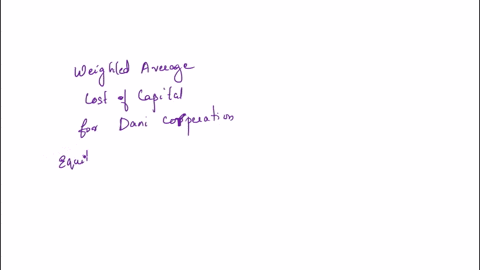 Weighted Average
Cost of Capital
for Dani Corporation
Equit